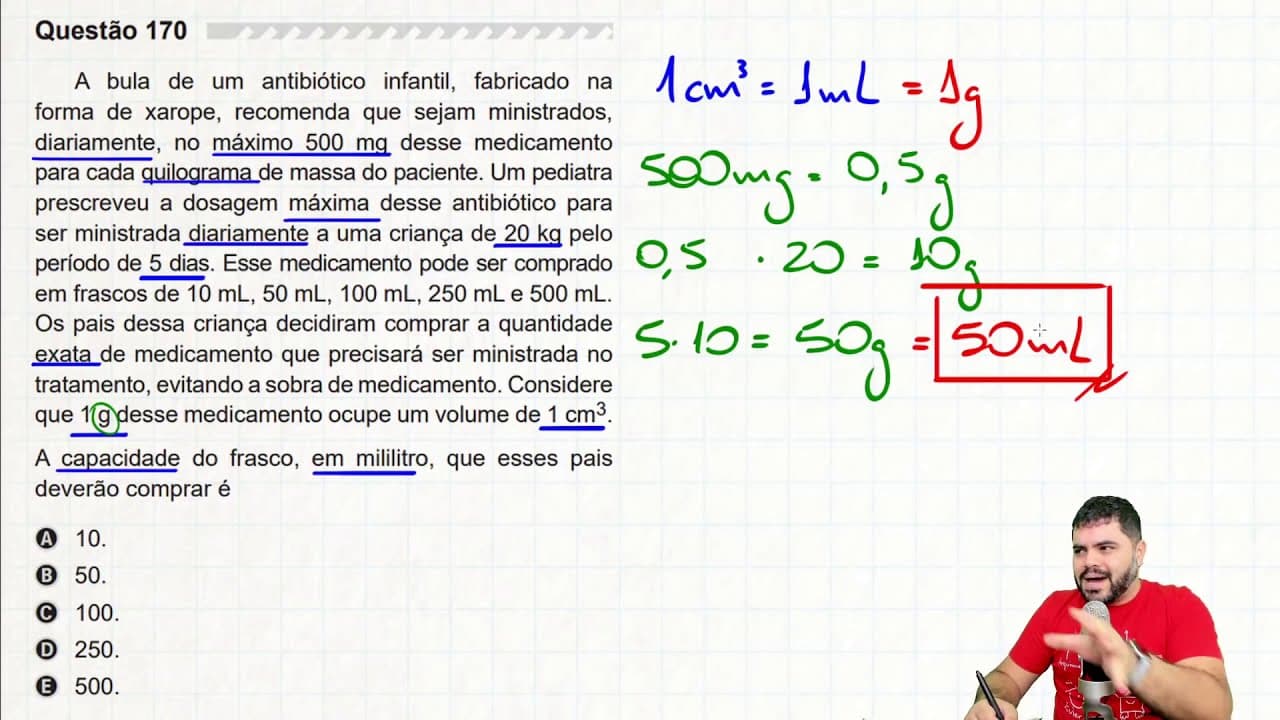 Questão 170
A bula de um antibiótico infantil, fabricado na
forma de xarope, recomenda que sejam ministrados,
diariamente, no máximo 500 mg desse medicamento
para cada quilograma de massa do paciente. Um pediatra
prescreveu a dosagem máxima desse antibiótico para
ser ministrada diariamente a uma criança de 20 kg pelo
período de 5 dias. Esse medicamento pode ser comprado
em frascos de 10 mL, 50 mL, 100 mL, 250 mL e 500 mL.
Os pais dessa criança decidiram comprar a quantidade
exata de medicamento que precisará ser ministrada no
tratamento, evitando a sobra de medicamento. Considere
que 1 g desse medicamento ocupe um volume de 1 cm³.
A capacidade do frasco, em mililitro, que esses pais
deverão comprar é
A 10.
B 50.
C 100.
D 250.
E 500.
1cm³ = 1mL = 1g
500mg = 0,5g
0,5 · 20 = 10g
5·10 = 50g = 50mL